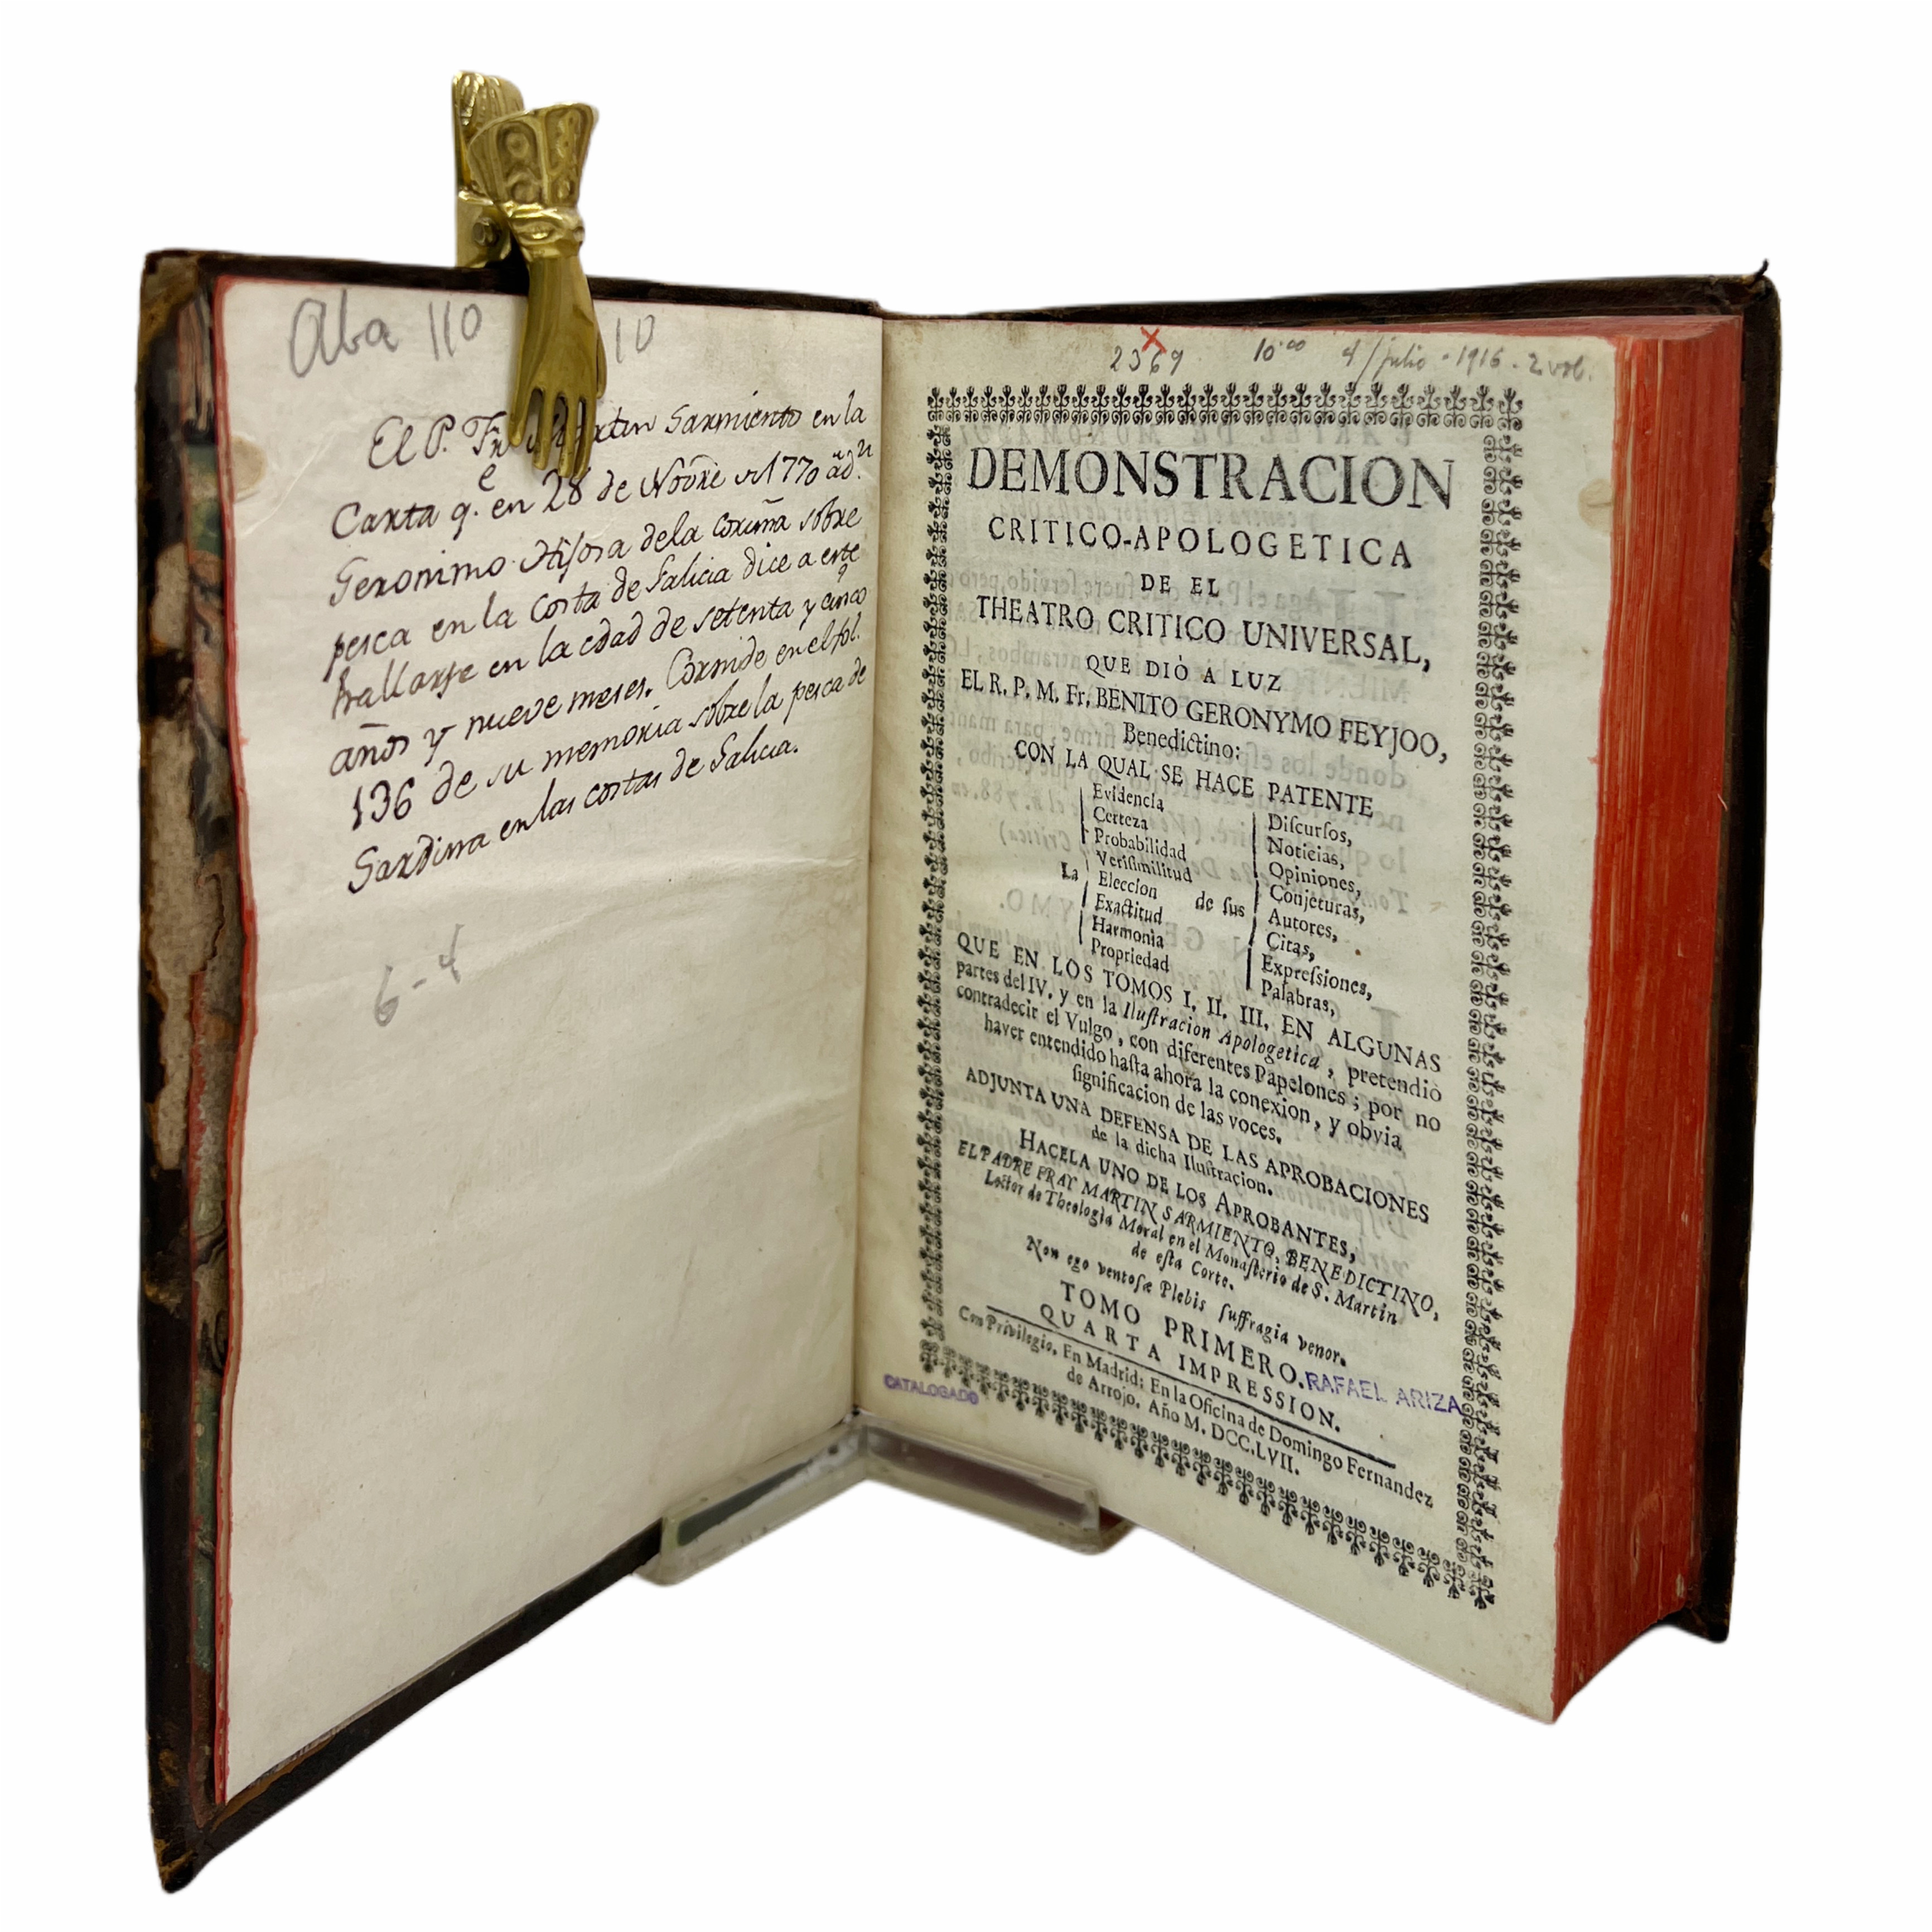 Aba 110 10
El P. Fr Sarmiento en la
Carta q.e en 28 de Novre 1770 
Geronimo Hijosa dela coruña sobre
pesca en la Costa de Galicia dice a este
hallarse en la edad de setenta y cinco
años y nueve meses. Cornide en el fol.
136 de su memoria sobre la pesca de
Sardina en las costas de Galicia.
6-4
2369 10'00 4/julio-1916-2 vol.
DEMONSTRACION
CRITICO-APOLOGETICA
DE EL
THEATRO CRITICO UNIVERSAL,
QUE DIÒ A LUZ
EL R. P. M. Fr. BENITO GERONYMO FEYJOO,
Benedictino:
CON LA QUAL SE HACE PATENTE
Evidencia Discursos,
Certeza Noticias,
Probabilidad Opiniones,
Verisimilitud Conjeturas,
La Eleccion de sus Autores,
Exactitud Citas,
Harmonìa Expressiones,
Propriedad Palabras,
QUE EN LOS TOMOS I. II. III. EN ALGUNAS
partes del IV. y en la Ilustracion Apologetica, pretendiò
contradecir el Vulgo, con diferentes Papelones; por no
haver entendido hasta ahora la conexion, y obvia
significacion de las voces.
ADJUNTA UNA DEFENSA DE LAS APROBACIONES
de la dicha Ilustracion.
HACELA UNO DE LOS APROBANTES,
EL PADRE FRAY MARTIN SARMIENTO, BENEDICTINO,
Lector de Theologìa Moral en el Monasterio de S. Martin
de esta Corte.
Non ego ventosæ Plebis suffragia venor.
TOMO PRIMERO.
QUARTA IMPRESSION.
RAFAEL ARIZA
CATALOGADO
Con Privilegio. En Madrid: En la Oficina de Domingo Fernandez
de Arrojo. Año M. DCC.LVII.